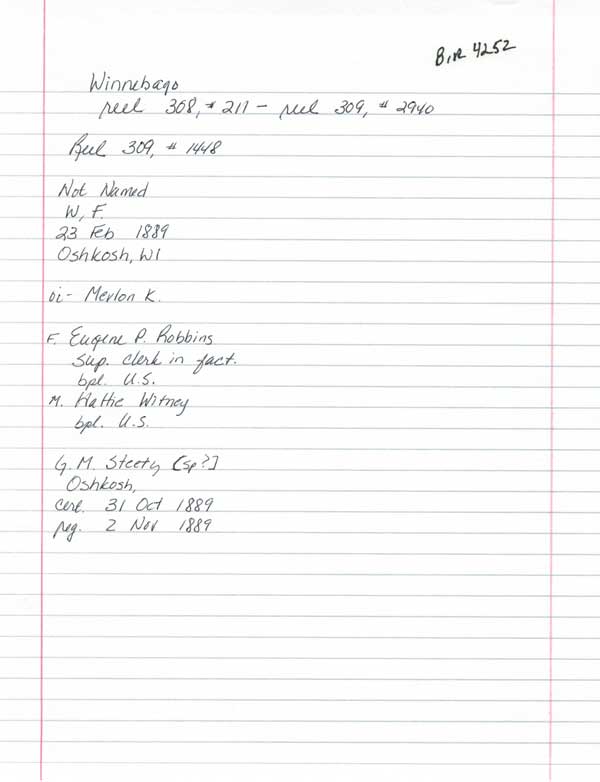 BIR 4252
Winnebago
reel 308, # 211 - reel 309, # 2940
Reel 309, # 1448
Not Named
W, F.
23 Feb 1889
Oshkosh, WI
oi - Merlon K.
F. Eugene P. Robbins
Sup. clerk in fact.
bpl. U.S.
M. Hattie Witney
bpl. U.S.
G. M. Steety [sp?]
Oshkosh,
cert. 31 Oct 1889
reg. 2 Nov 1889